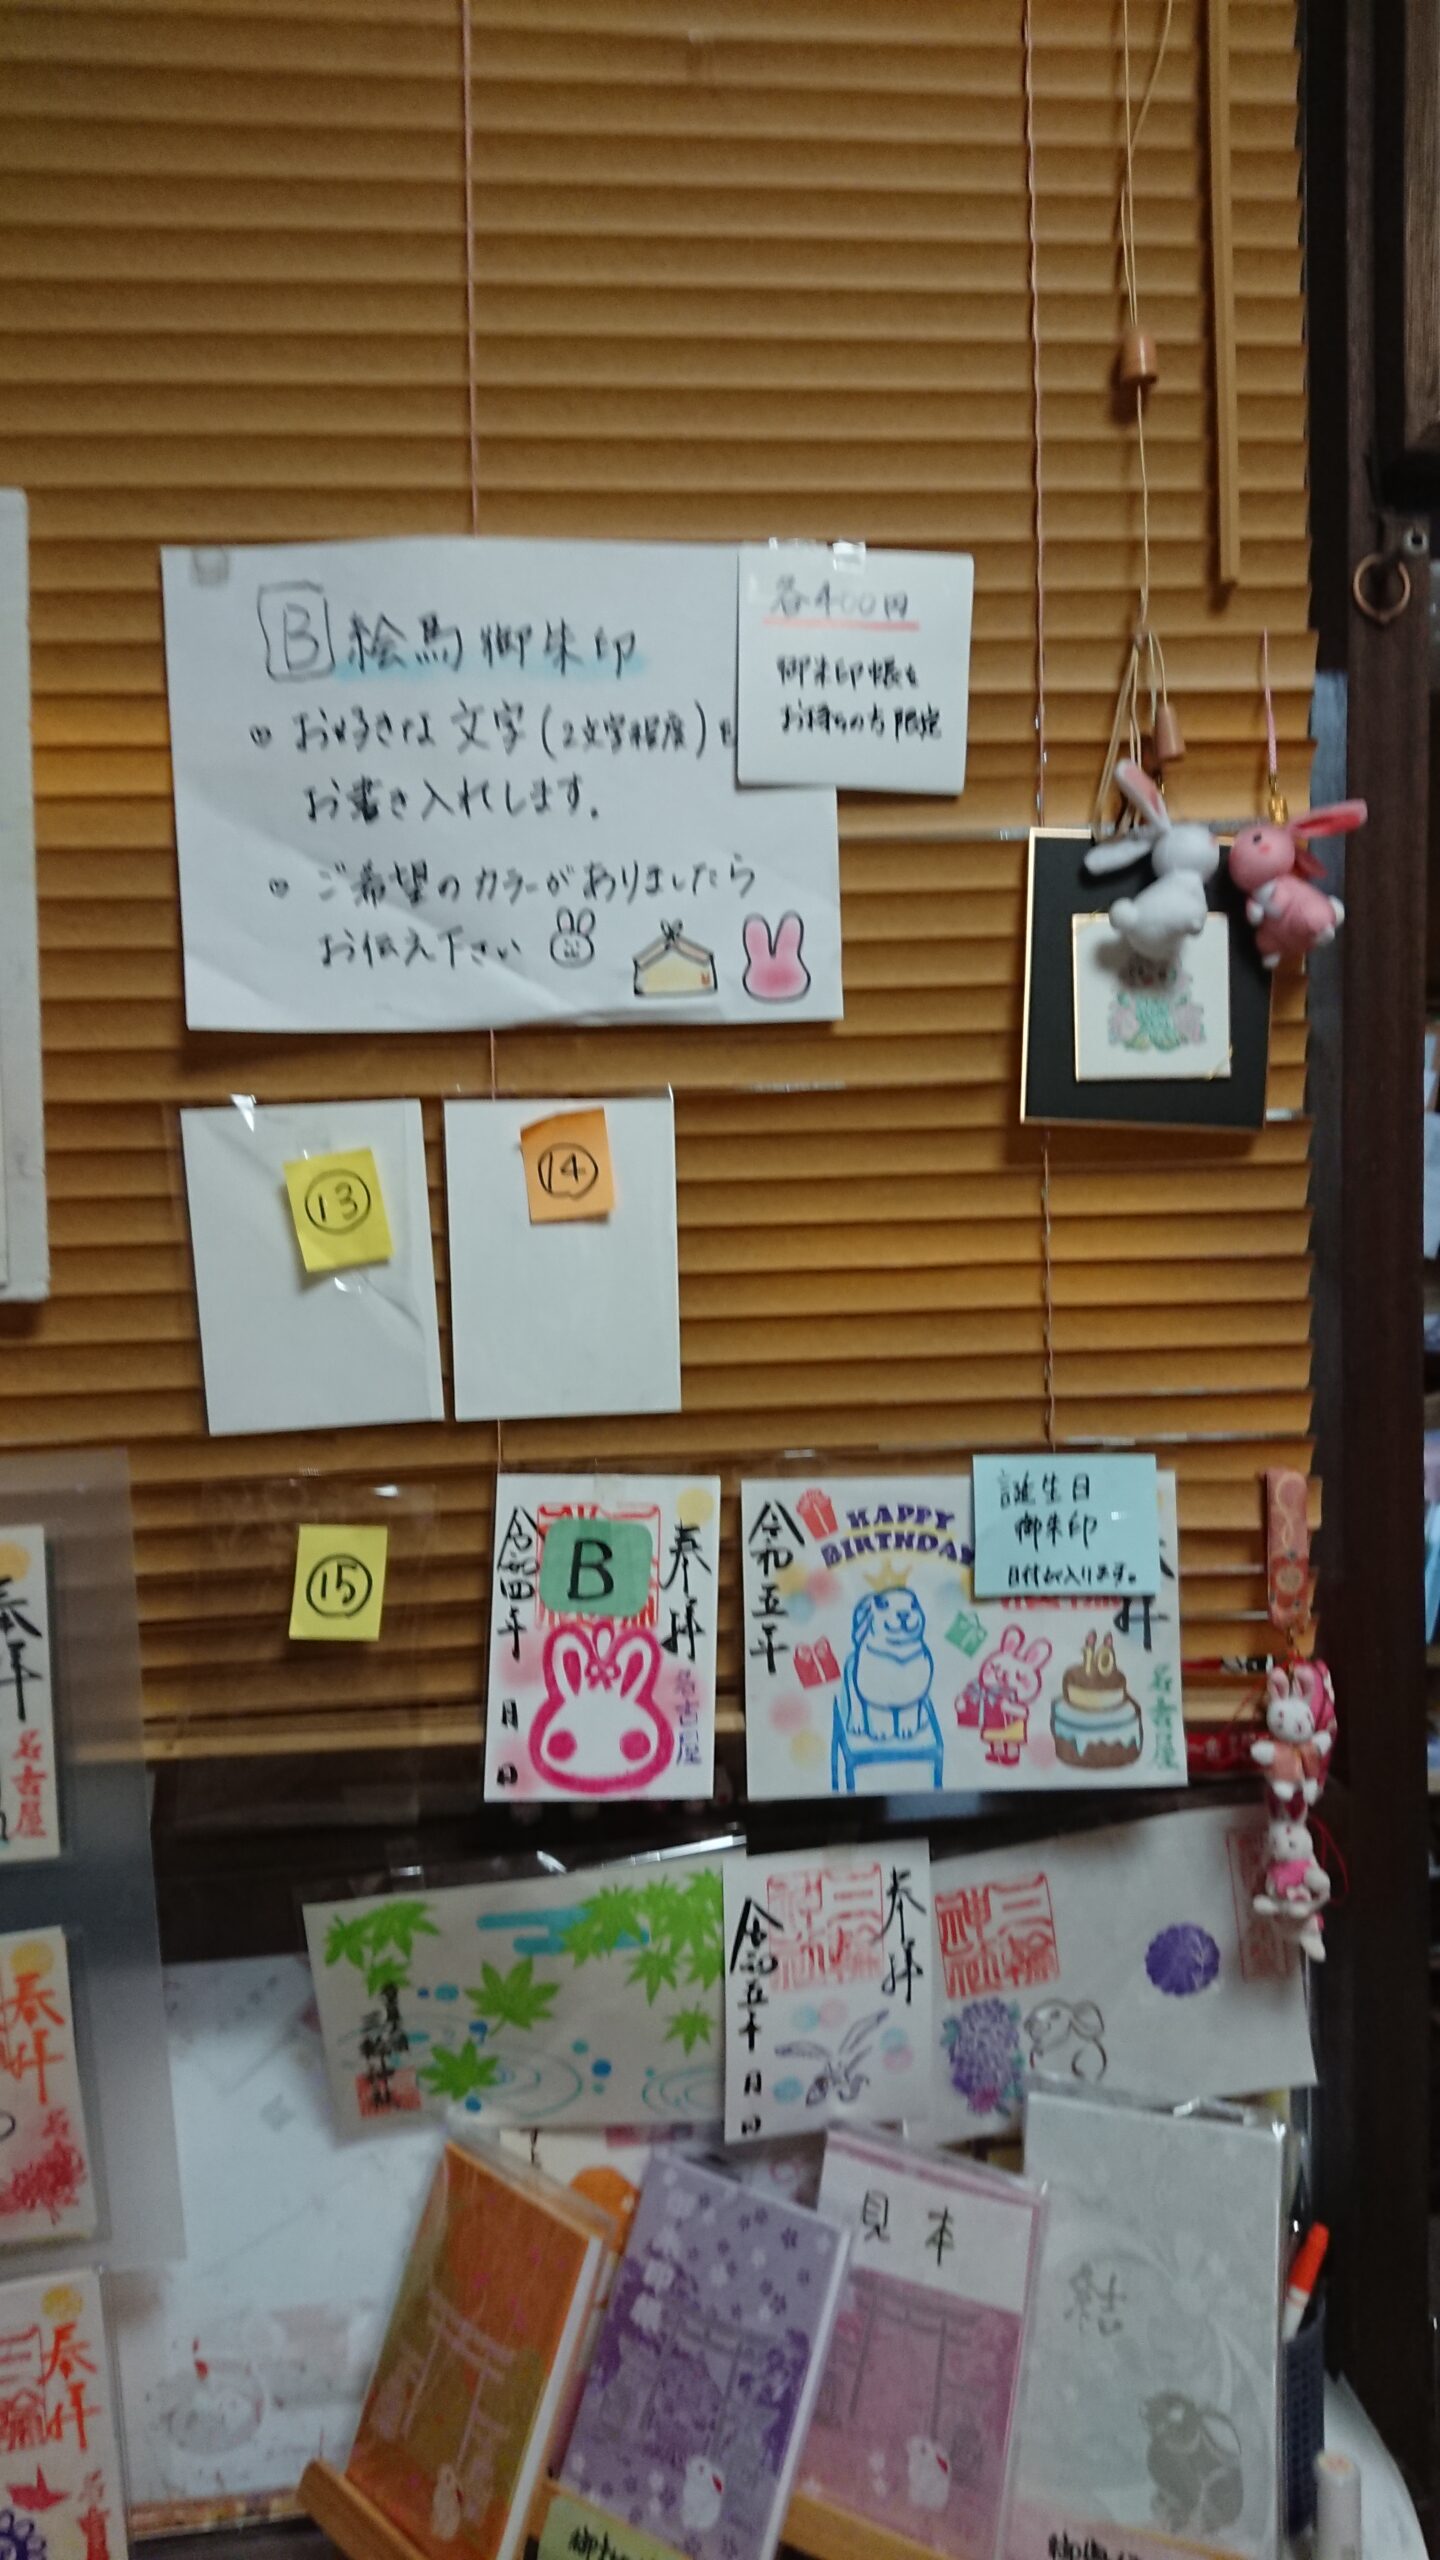 B 絵馬御朱印
お好きな文字(2文字程度)を
お書き入れします.
ご希望のカラーがありましたら
お伝え下さい
各400円
御朱印帳を
お持ちの方限定
13
14
15
奉拝
B
名古屋
令和四年
月
日
HAPPY
BIRTHDAY
誕生日
御朱印
日付が入ります。
拝
10
名古屋
令和五年
奉拝
名古屋
奉拝
三輪神社
令和五年
月
日
三輪神社
奉拝
奉拝
三輪
見本
結